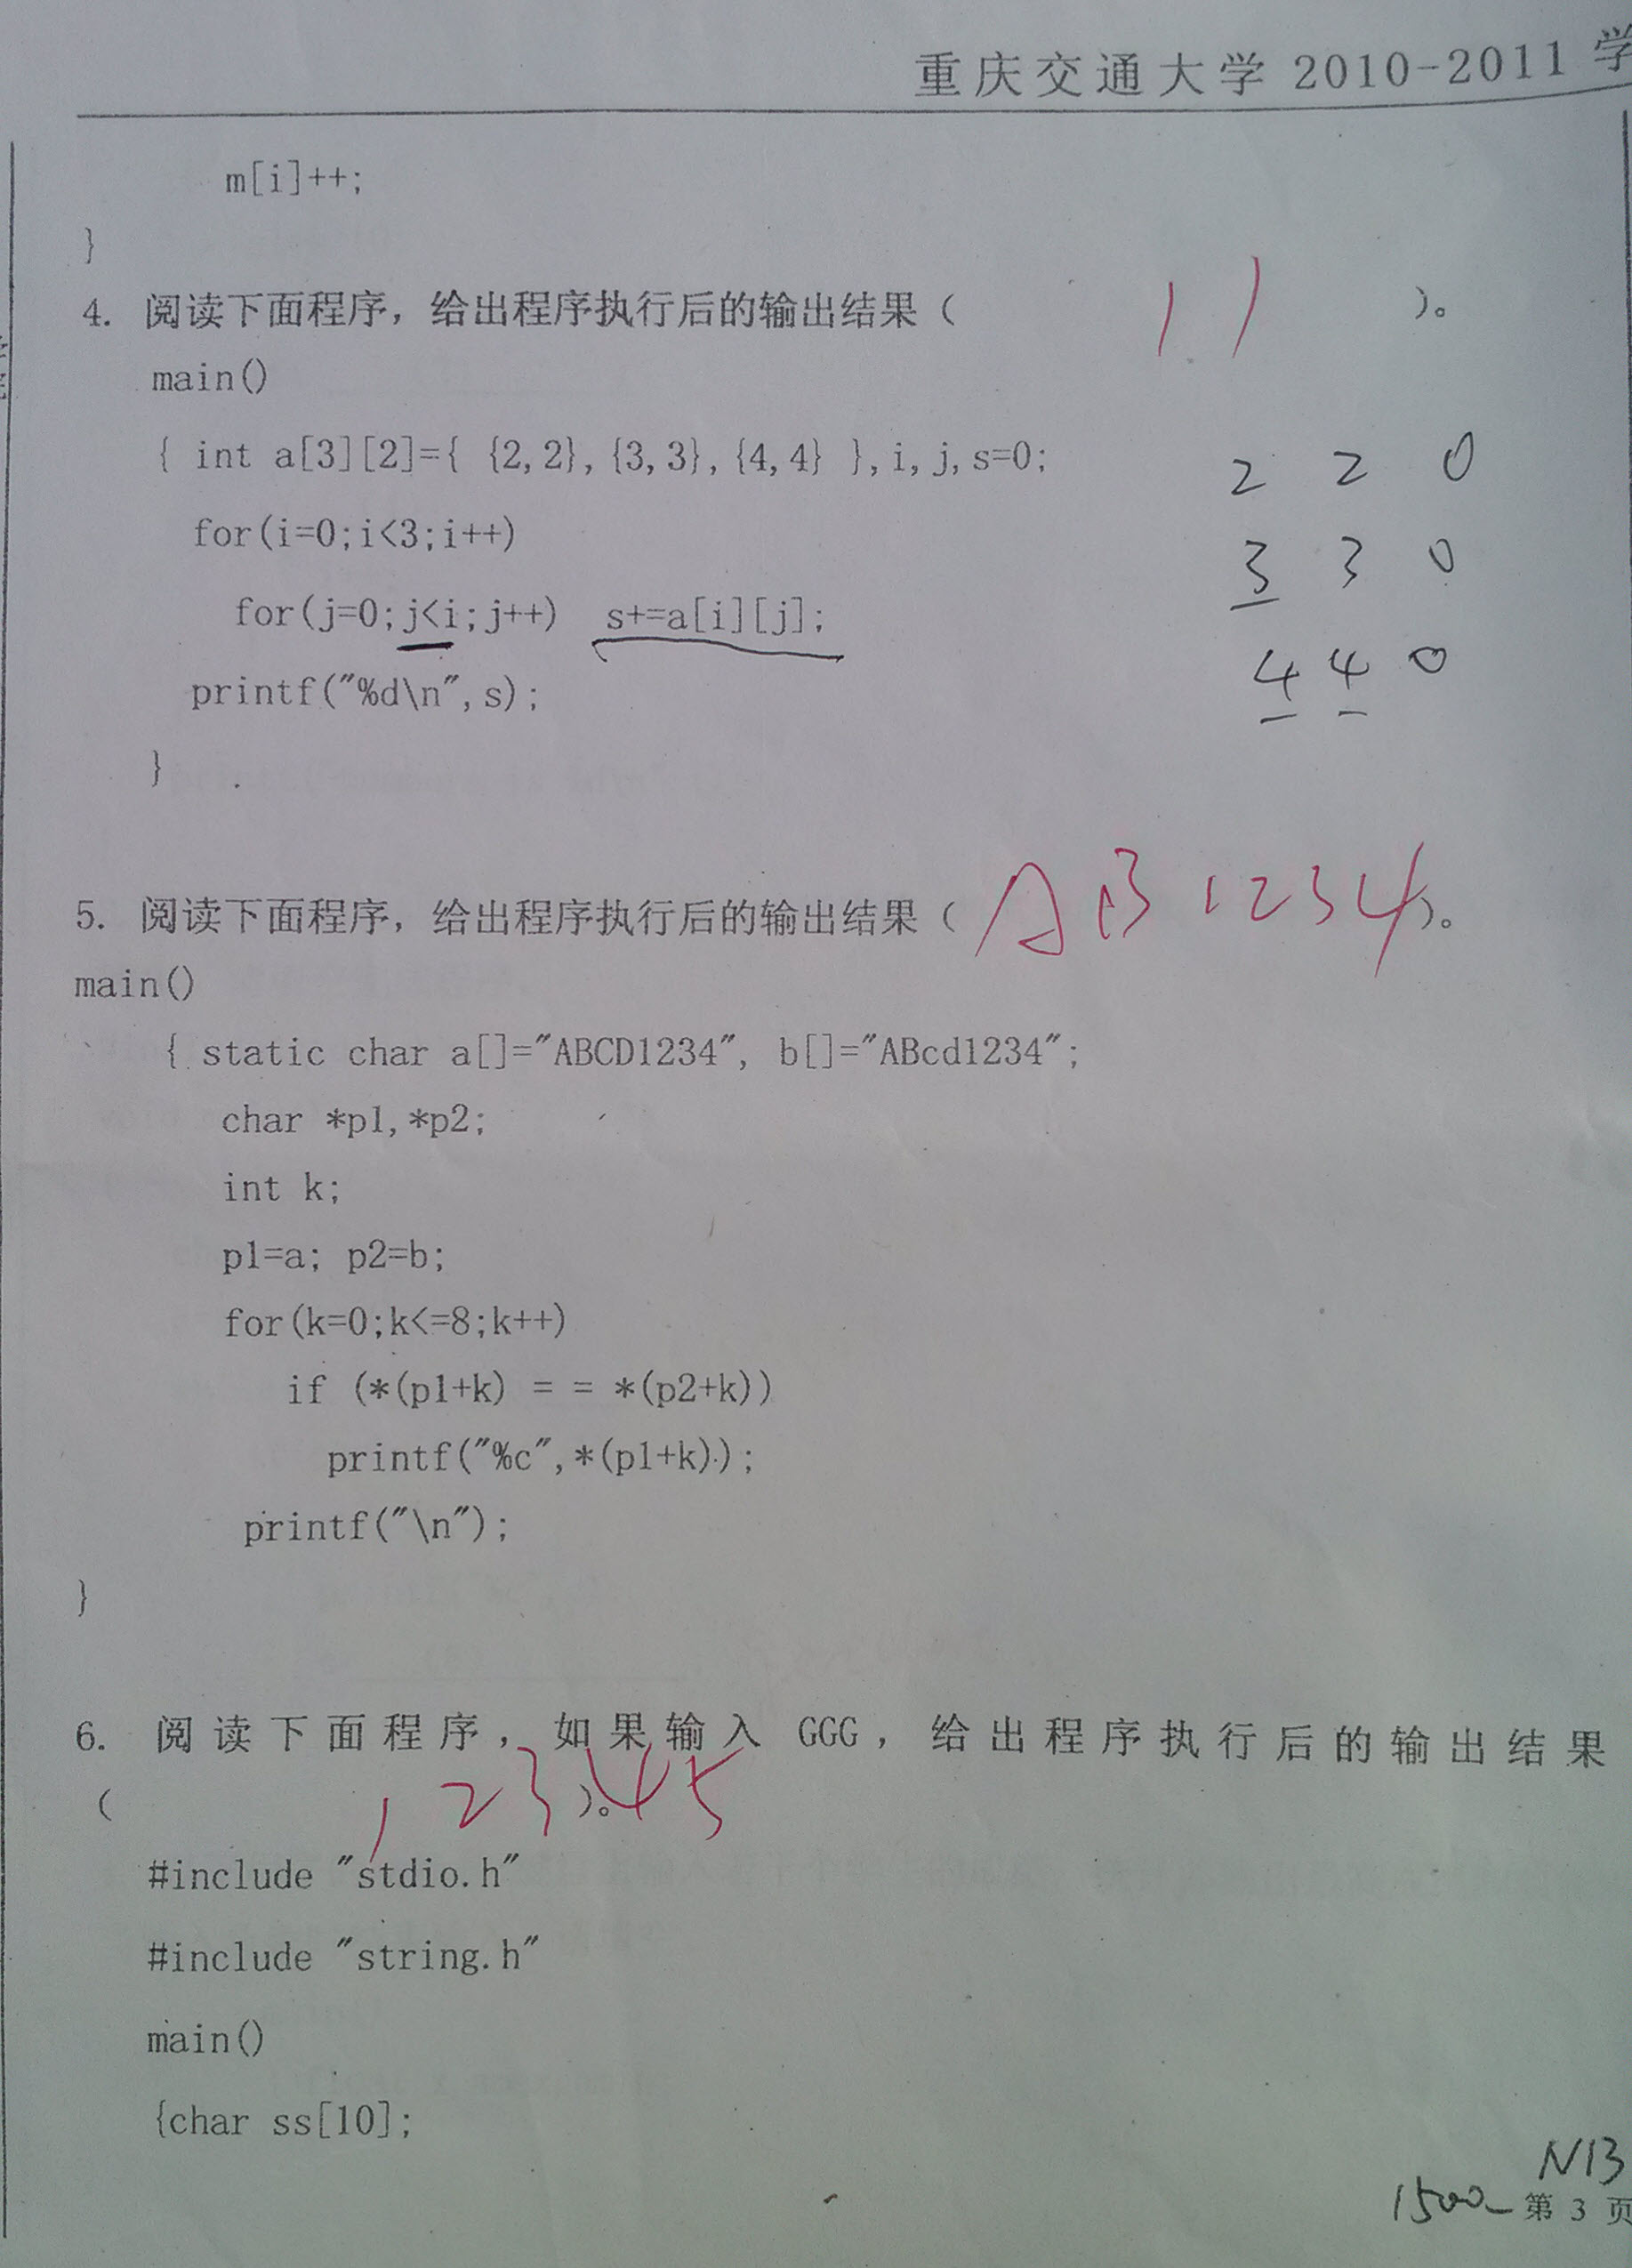 重庆交通大学 2010-2011 学
m[i]++;
}
4. 阅读下面程序，给出程序执行后的输出结果（ 11 ）。
main()
{ int a[3][2]={ {2,2},{3,3},{4,4} },i,j,s=0;
2 2 0
for(i=0;i<3;i++)
3 3 0
for(j=0;j<i;j++) s+=a[i][j];
4 4 0
printf("%d\n",s);
}
5. 阅读下面程序，给出程序执行后的输出结果（ AB1234 ）。
main()
{ static char a[]="ABCD1234", b[]="ABcd1234";
char *p1,*p2;
int k;
p1=a; p2=b;
for(k=0;k<=8;k++)
if (*(p1+k) = = *(p2+k))
printf("%c",*(p1+k));
printf("\n");
}
6. 阅读下面程序，如果输入 GGG，给出程序执行后的输出结果
（ 12345 ）。
#include "stdio.h"
#include "string.h"
main()
{char ss[10];
N13
1500 第 3 页